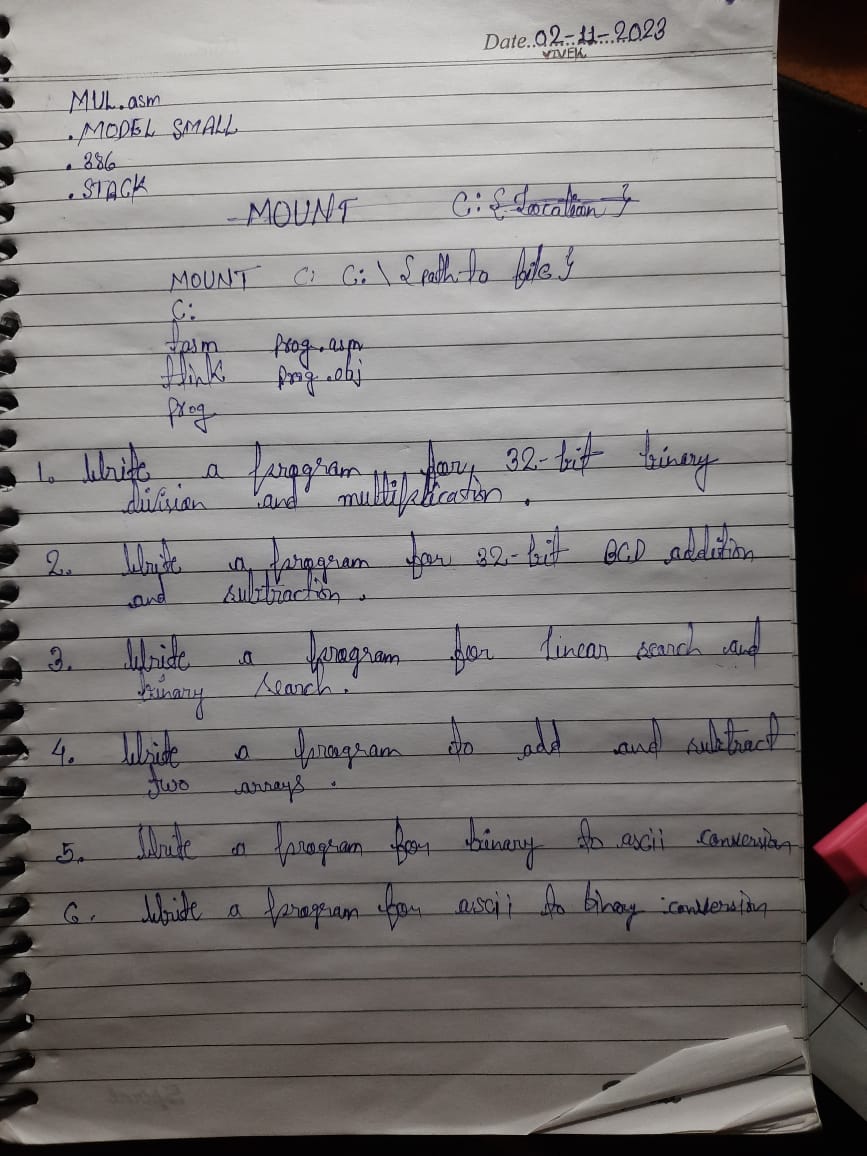 Date..02-11-2023
VIVEK
MUL.asm
.MODEL SMALL
.386
.STACK
-MOUNT C:{Location}
MOUNT C: C:\{path to file}
C:
tasm prog.asm
tlink prog.obj
prog
1. Write a program for 32-bit binary
division and multiplication.
2. Write a program for 32-bit BCD addition
and subtraction.
3. Write a program for linear search and
binary search.
4. Write a program to add and subtract
two arrays.
5. Write a program for binary to ascii conversion
6. Write a program for ascii to binary conversion